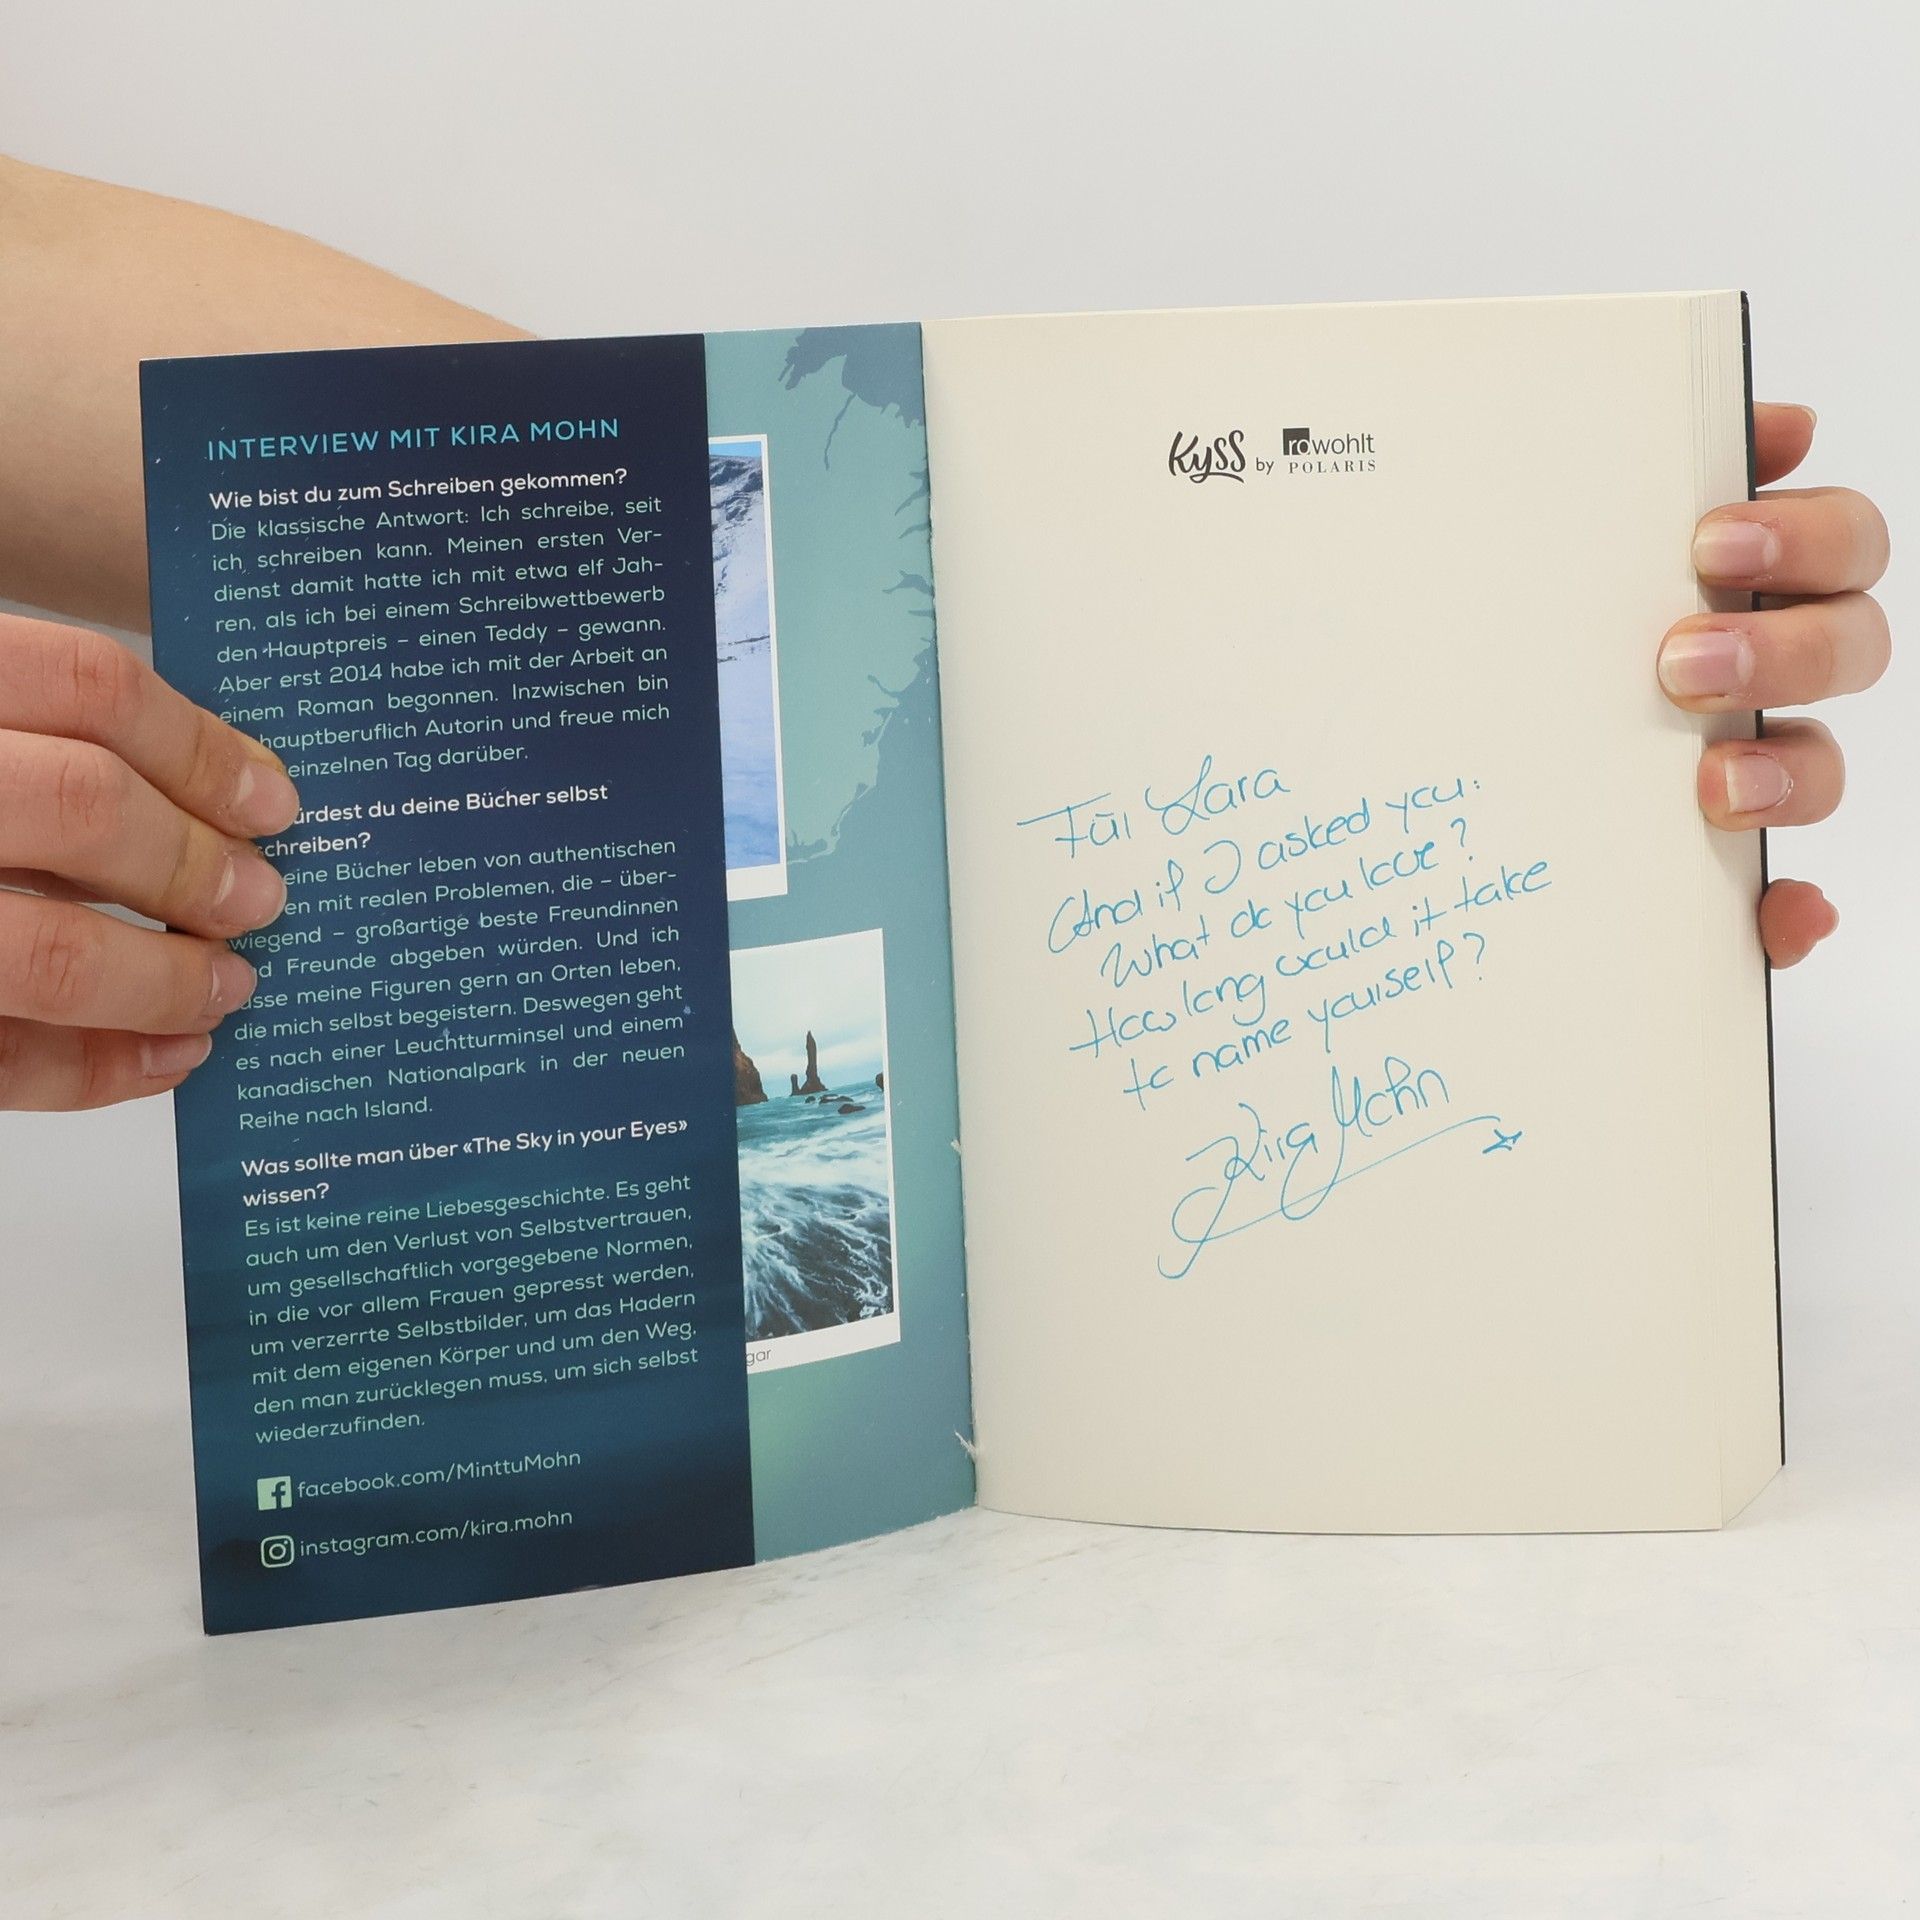 INTERVIEW MIT KIRA MOHN
Wie bist du zum Schreiben gekommen?
Die klassische Antwort: Ich schreibe, seit
ich schreiben kann. Meinen ersten Ver-
dienst damit hatte ich mit etwa elf Jah-
ren, als ich bei einem Schreibwettbewerb
den Hauptpreis – einen Teddy – gewann.
Aber erst 2014 habe ich mit der Arbeit an
einem Roman begonnen. Inzwischen bin
hauptberuflich Autorin und freue mich
einzelnen Tag darüber.
ürdest du deine Bücher selbst
chreiben?
eine Bücher leben von authentischen
en mit realen Problemen, die – über-
wiegend – großartige beste Freundinnen
d Freunde abgeben würden. Und ich
asse meine Figuren gern an Orten leben,
die mich selbst begeistern. Deswegen geht
es nach einer Leuchtturminsel und einem
kanadischen Nationalpark in der neuen
Reihe nach Island.
Was sollte man über «The Sky in your Eyes»
wissen?
Es ist keine reine Liebesgeschichte. Es geht
auch um den Verlust von Selbstvertrauen,
um gesellschaftlich vorgegebene Normen,
in die vor allem Frauen gepresst werden,
um verzerrte Selbstbilder, um das Hadern
mit dem eigenen Körper und um den Weg,
den man zurücklegen muss, um sich selbst
wiederzufinden.
facebook.com/MinttuMohn
instagram.com/kira.mohn
gar
Kyss by rowohlt
POLARIS
Für Lara
And if I asked you:
What do you love?
How long would it take
to name yourself?
Kira Mohn